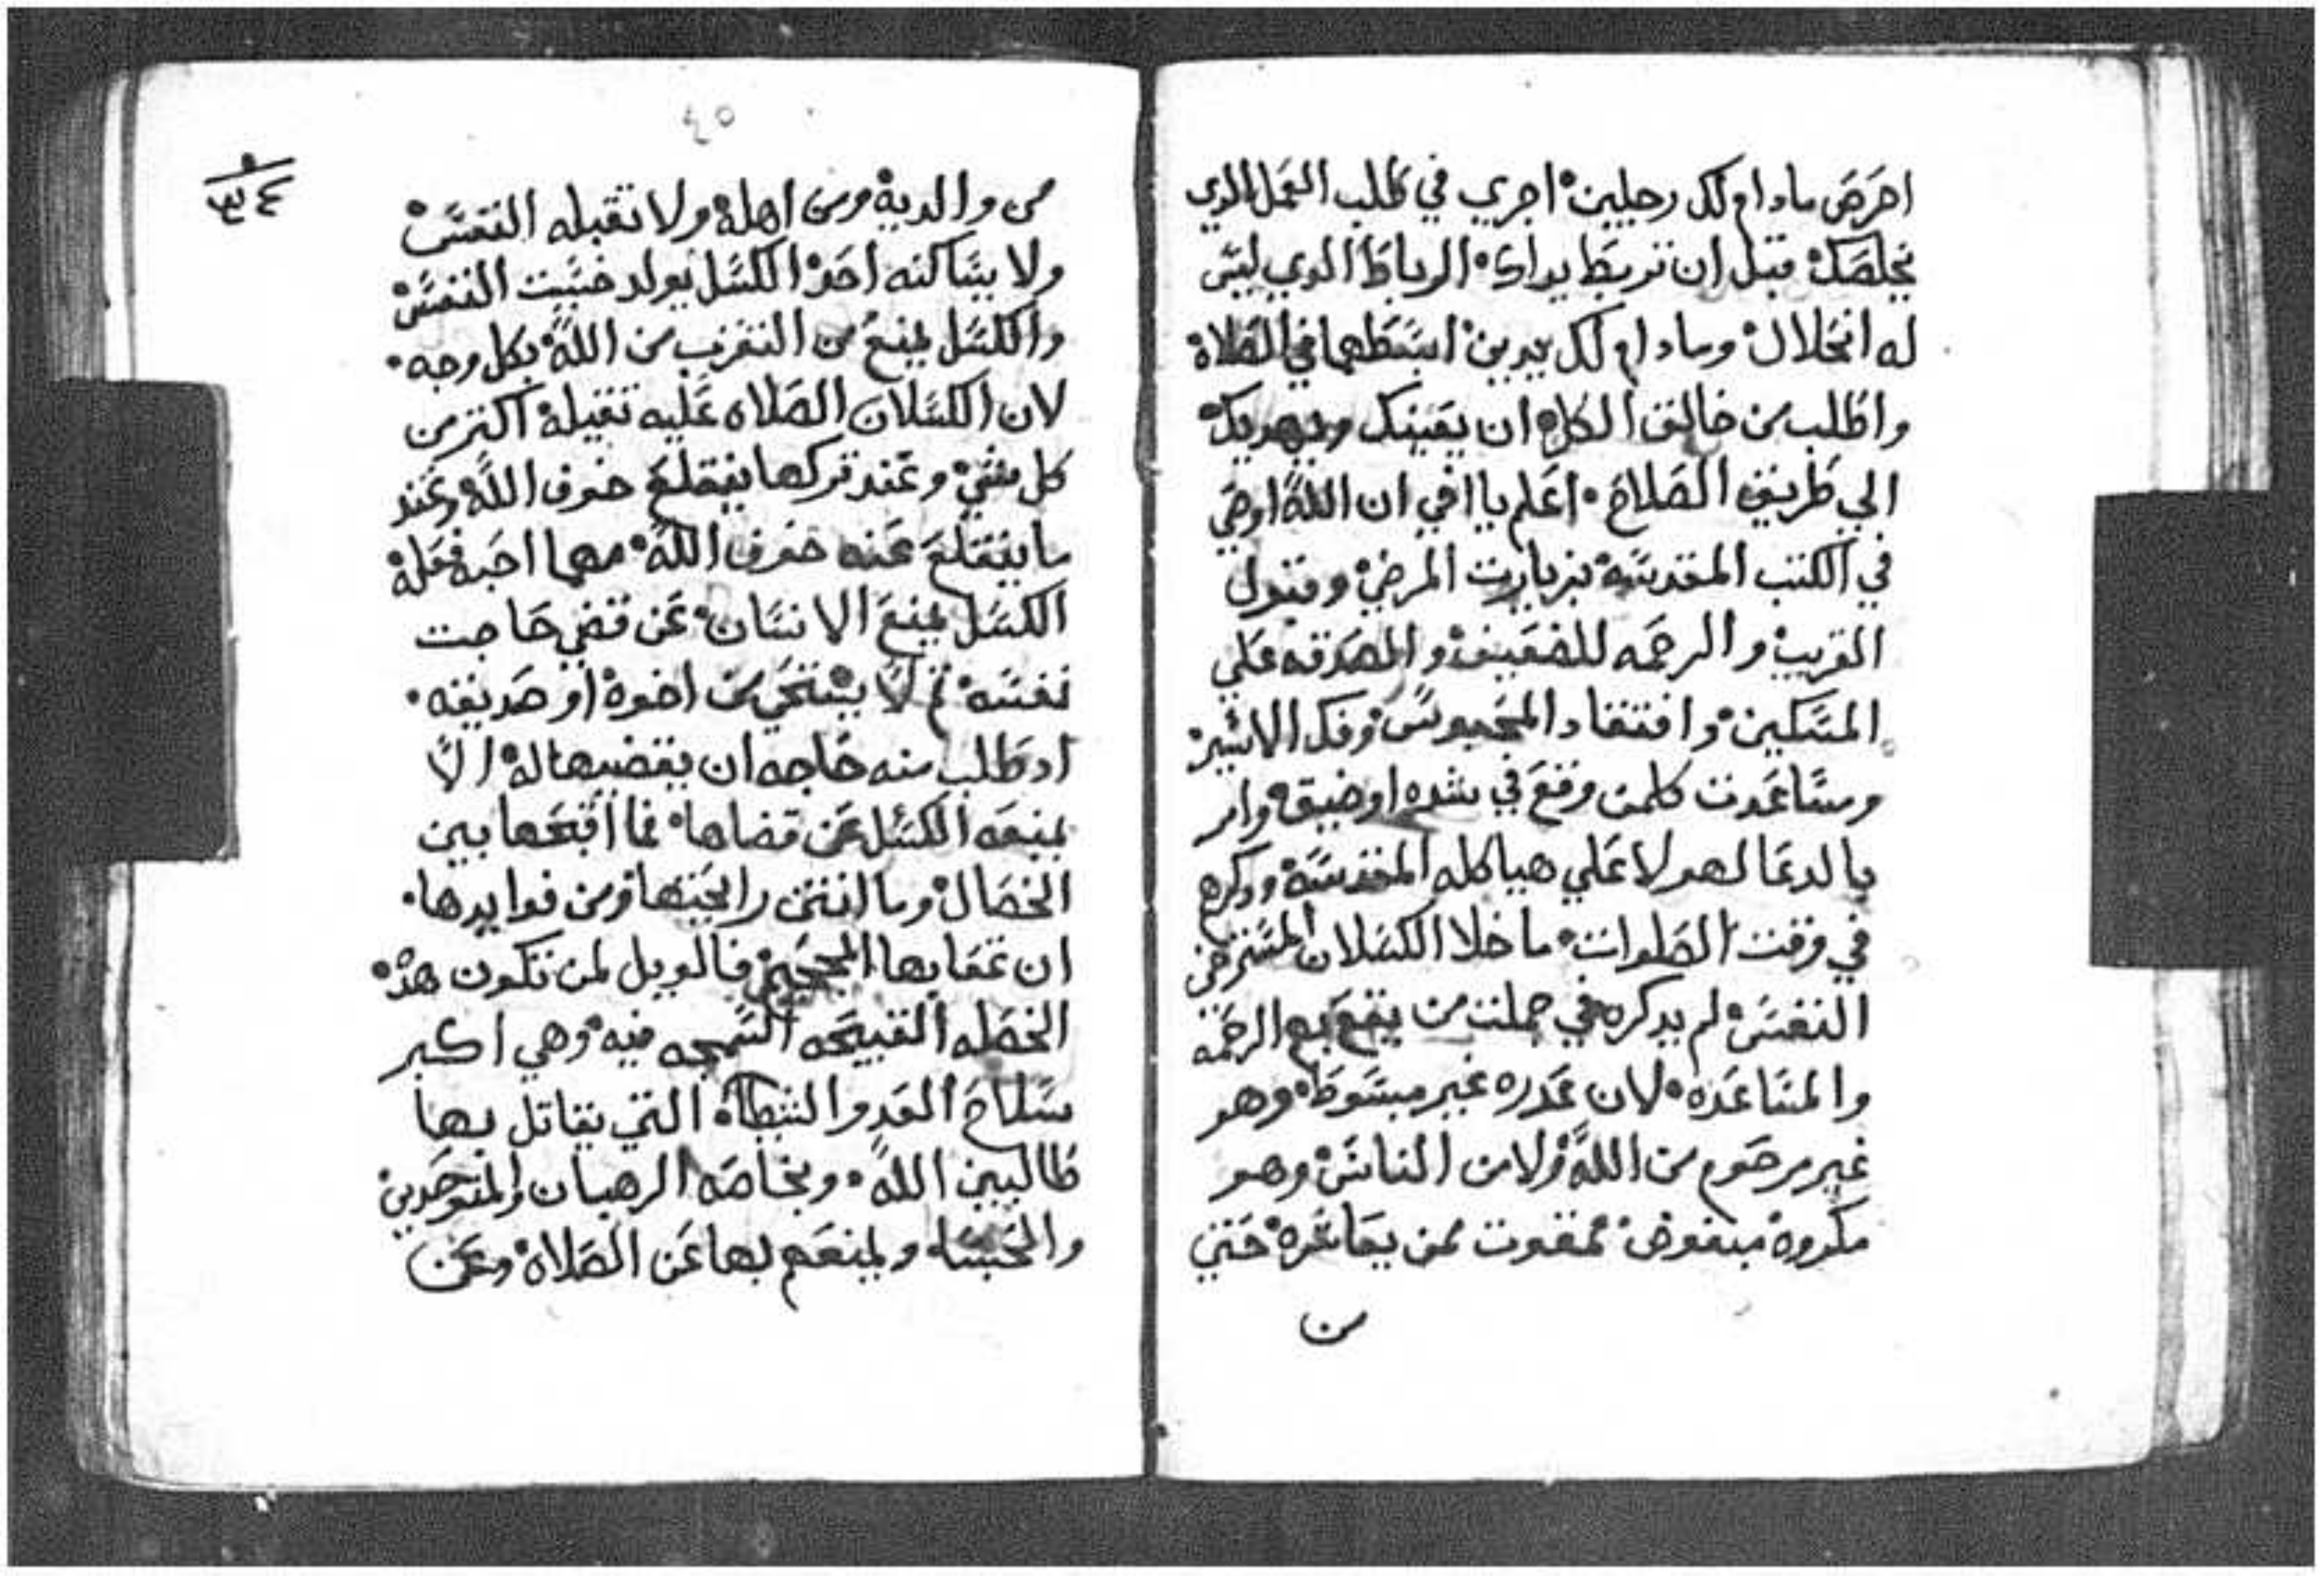 احرص مادام لك رجلين اجري في طلب العمل الدي
يخلصك قبل ان تربط يداك الرباط الدي ليس
له انحلال ومادام لك يدين ابسطهما في الصلاة
واطلب من خالق الكل ان يعينك ويهديك
الي طريق الصلاح اعلم يا اخي ان الله اوصي
في الكتب المقدسه بزيارت المرضي وقبول
الغريب والرحمه للضعيف والصدقه علي
المسكين وافتقاد المحبوس وفك الاسير
ومساعدت كلمن وقع في شده او ضيق وامر
بالدعا لهولا علي هياكله المقدسه ودكرهم
في وقت الصلوات ما خلا الكسلان المسترخي
النفس لم يدكره في جملت من يقع به الرحمه
والمساعده لان عدره غير مبسوط وهو
غير مرحوم من الله ولا من الناس وهو
مكروه مبغوض ممقوت ممن يعاشره حتي
من
٤٥
٣٤
من والديه ومن اهله ولا تقبله النفس
ولا يساكنه احد الكسل يولد خبيت النفس
والكسل يمنع من التقرب من الله بكل وجه
لان الكسلان الصلاه عليه تقيله اكتر من
كل شي وعند تركها ينقلع خوف الله وعند
ما ينقلع عنه خوف الله مهما احبه فعله
الكسل يمنع الانسان عن قضي حاجت
نفسه تم لا يستحي من اخوه او صديقه
اد طلب منه حاجه ان يقضيها له الا
يمنعه الكسل عن قضاها فما اقبحها بين
الخصال وما انتن رايحتها ومن فوايدها
ان عقابها الجحيم فالويل لمن تكون هده
الخصله القبيحه السمجه فيه وهي اكبر
سلاح العدو الشيطان التي يقاتل بها
طالبين الله وبخاصه الرهبان والمتوحدين
والحبسا ويمنعهم بها عن الصلاة وعن